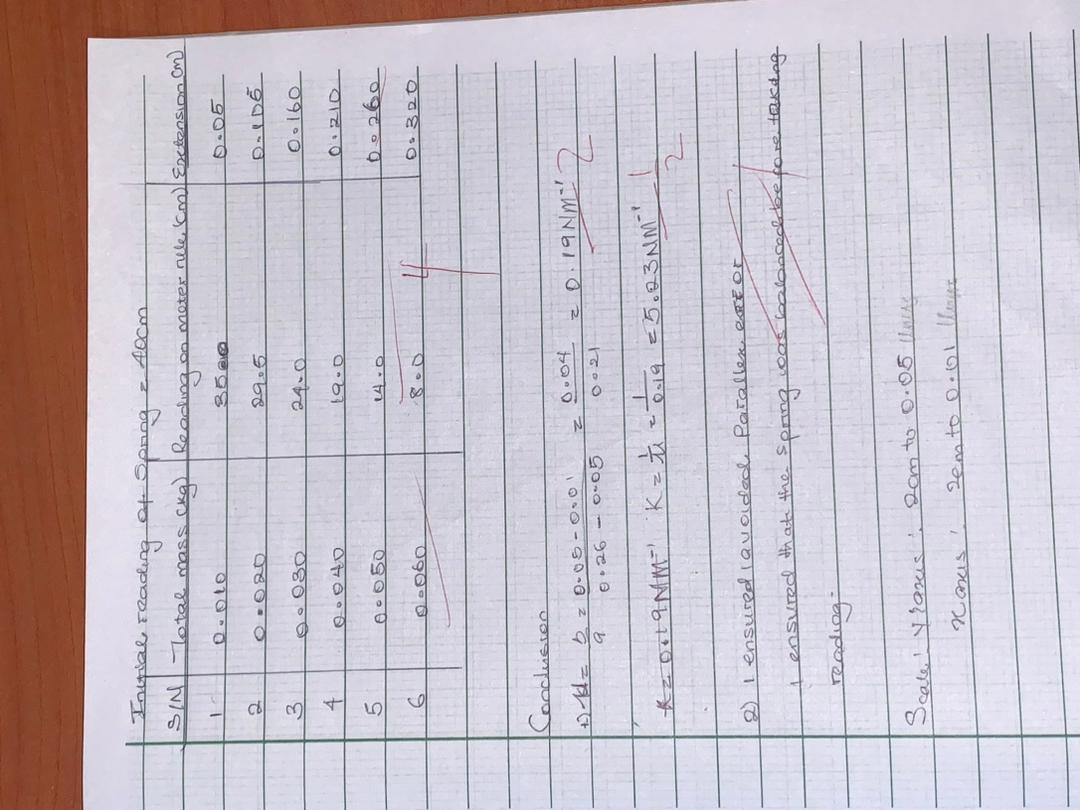 Initial reading of Spring = 40cm
S/N Total mass (kg) Reading on meter rule (cm) Extension (m)
1 0.010 35.0 0.05
2 0.020 29.5 0.105
3 0.030 24.0 0.160
4 0.040 19.0 0.210
5 0.050 14.0 0.260
6 0.060 8.0 0.320
4
Conclusion
= 0.05 - 0.01 / 0.26 - 0.05 = 0.04 / 0.21 = 0.19 NM⁻¹ 2
= 0.19 NM⁻¹ K = = 1/0.19 = 5.23 NM⁻¹ 1
2
2) I ensured I avoided Parallex error
I ensured that the spring was balanced before taking
reading.
Scale: Y axis: 2cm to 0.05 Units
X axis: 2cm to 0.01 Units